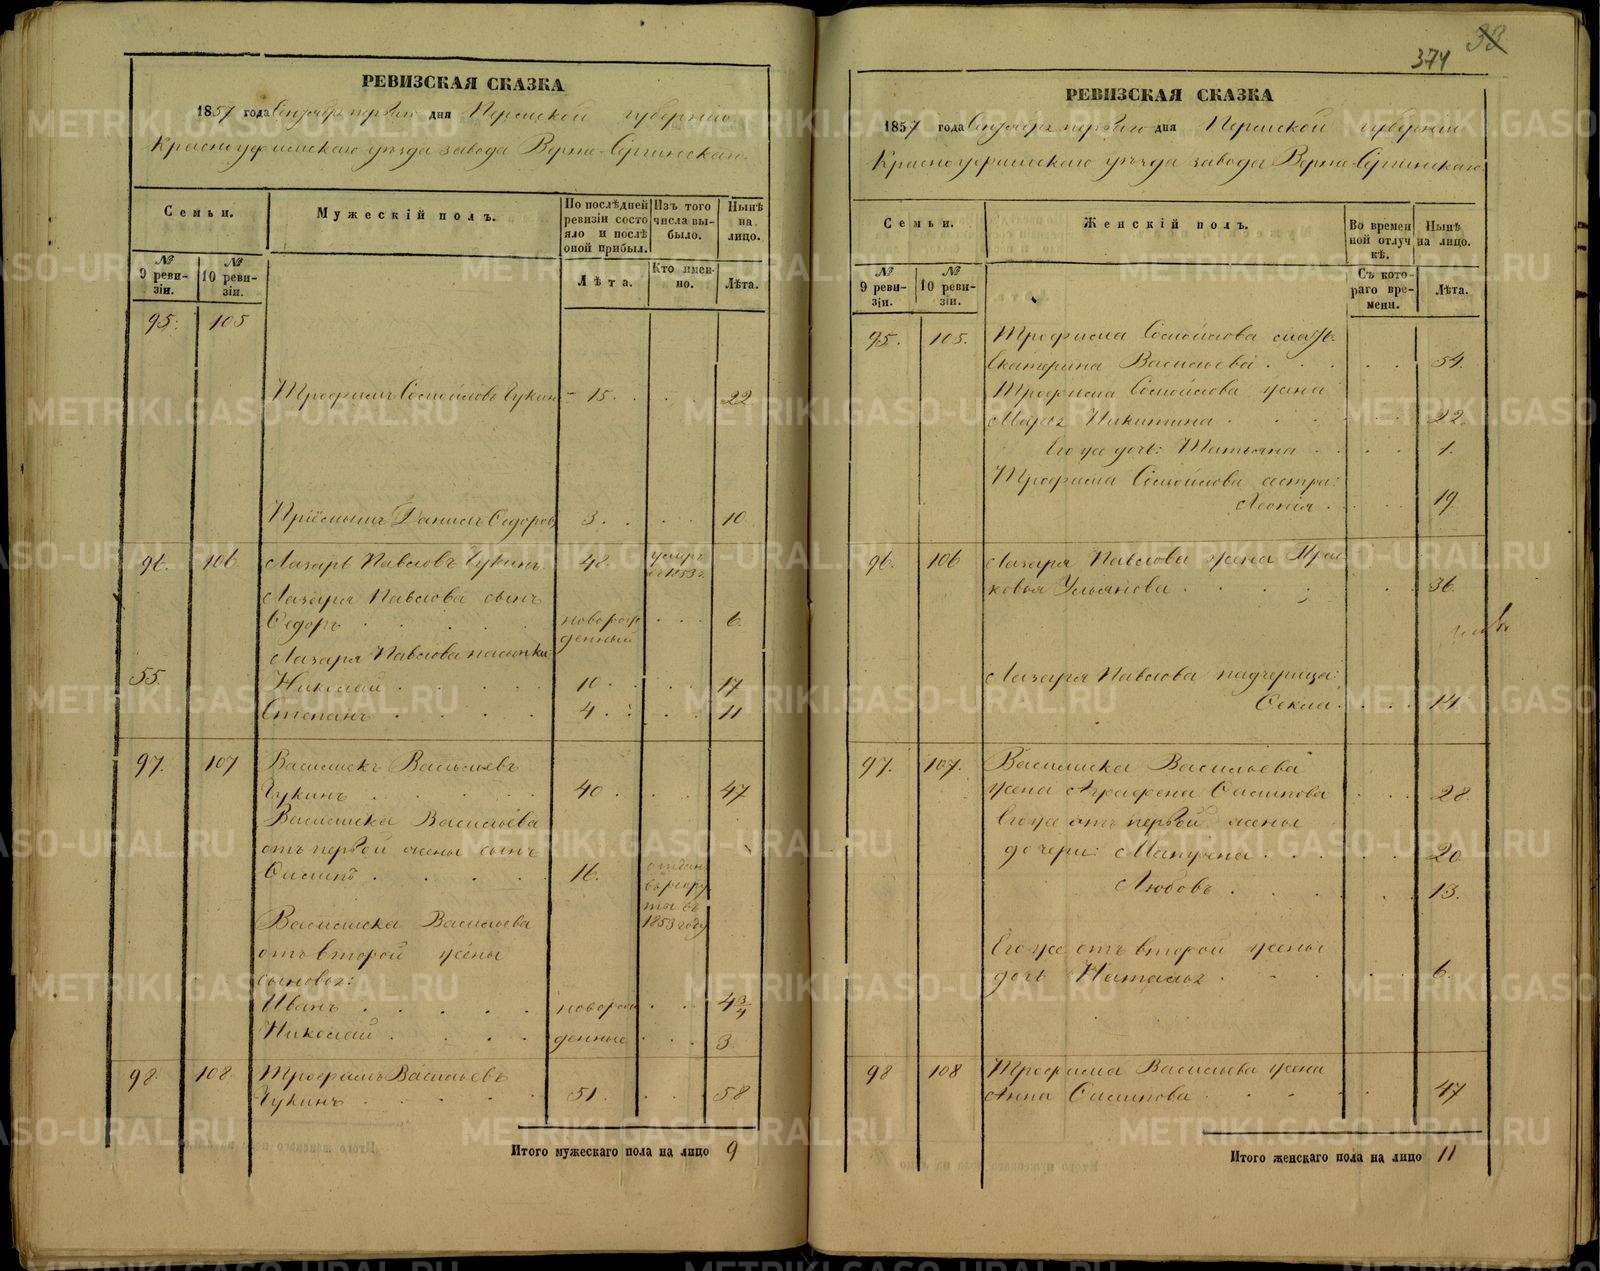 РЕВИЗСКАЯ СКАЗКА
1857 года дня Пермской губернiи
Красноуфимскаго уѣзда завода Верхне-Сергинскаго
Семьи.
Мужескiй полъ.
По послѣдней ревизiи состояло и послѣ оной прибыл.
Изъ того числа выбыло.
Нынѣ на лицо.
№ 9 ревизiи.
№ 10 ревизiи.
Лѣта.
Кто именно.
Лѣта.
95. 105
Трофимъ Чукин 15. 22
Прiемышъ Данилъ Ѳедоров 3. 10
96. 106. Лазарь Павловъ Чукинъ 48. умеръ въ 1853 г.
Лазаря Павлова сынъ
Ѳедоръ новорожденный 6.
Лазаря Павлова пасынки
55. Николай 10 17
Степанъ 4. 11
97. 107 Василискъ Васильевъ
Чукинъ 40 47
Василиска Васильева
отъ первой жены сынъ
Осипъ 16. отдан в рекруты въ 1853 году
Василиска Васильева
отъ второй жены
сыновья:
Иванъ новорож 4 3/4
Николай денные 3.
98. 108. Трофимъ Васильевъ
Чукинъ 51. 58
Итого мужескаго пола на лицо 9
374
33
РЕВИЗСКАЯ СКАЗКА
1857 года дня Пермской губернiи
Красноуфимскаго уѣзда завода Верхне-Сергинскаго
Семьи.
Женскiй полъ.
Во временной отлучкѣ.
Нынѣ на лицо.
№ 9 ревизiи.
№ 10 ревизiи.
Съ котораго времени.
Лѣта.
95. 105. Трофима мать
Екатерина Васильева 54.
Трофима жена
Марья Никитина 22
Его же дочь: Татьяна 1.
Трофима сестра:
19
96. 106 Лазаря Павлова жена Прас
ковья Ульянова 36.
Лазаря Павлова падчерица:
Ѳекла 14
97. 107. Василиска Васильева
жена Аграфена Осипова 28.
Его же отъ первой жены
дочери: Матрена 20
Любовь 13.
Его же отъ второй жены
дочь Наталья 6.
98 108 Трофима Васильева жена
Анна Осипова 47
Итого женскаго пола на лицо 11
METRIKI.GASO-URAL.RU